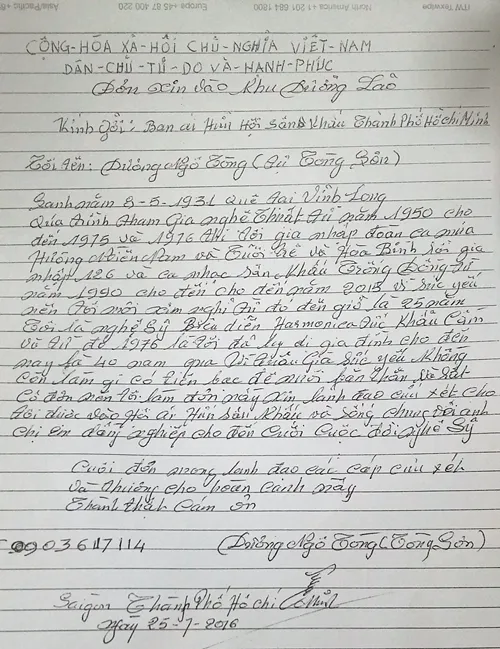 ITW Texwipe North America +1 201 684 1800 Europe +45 87 400 220 Asia/Pacific
CỘNG-HÒA XÃ-HỘI CHỦ-NGHĨA VIỆT-NAM
DÂN-CHỦ-TỰ-DO VÀ-HẠNH-PHÚC
Đơn xin vào Khu Dưỡng Lão
Kính gởi: Ban ái Hữu Hội sân Khấu Thành Phố Hồ chí Minh
Tôi tên: Dương Ngô Tòng (tự Tòng Sơn)
Sanh năm 8-5-1931 Quê tại Vĩnh Long
Quá trình tham gia nghệ thuật từ năm 1950 cho
đến 1975 và 1976 thì tôi gia nhập đoàn ca múa
Hương Miền Nam và Tuổi Trẻ và Hòa Bình rồi gia
nhập 126 và ca nhạc sân Khấu Trống Đồng từ
năm 1990 cho đến cho đến năm 2015 vì sức yếu
nên tôi mới xin nghỉ từ đó đến giờ là 25 năm
Tôi là nghệ sỹ Biểu diễn Harmonica tức Khẩu Cầm
và từ đó 1976 là tôi đã ly di gia đình cho đến
nay là 40 năm qua vì tuổi Già sức yếu không
còn làm gì có tiền bạc để nuôi bản thân và rất
cô đơn nên tôi làm đơn này xin lãnh đạo cứu xét cho
tôi được vào Hội ái Hữu sân Khấu và sống chung với anh
chị em đồng nghiệp cho đến cuối cuộc đời nghệ sỹ
Cuối đơn mong lãnh đạo các cấp cứu xét
và thương cho hoàn cảnh này
Thành thật cám ơn
0903617114 (Dương Ngô Tòng (Tòng Sơn)
Saigon Thành Phố Hồ chí Minh
ngày 25-7-2016